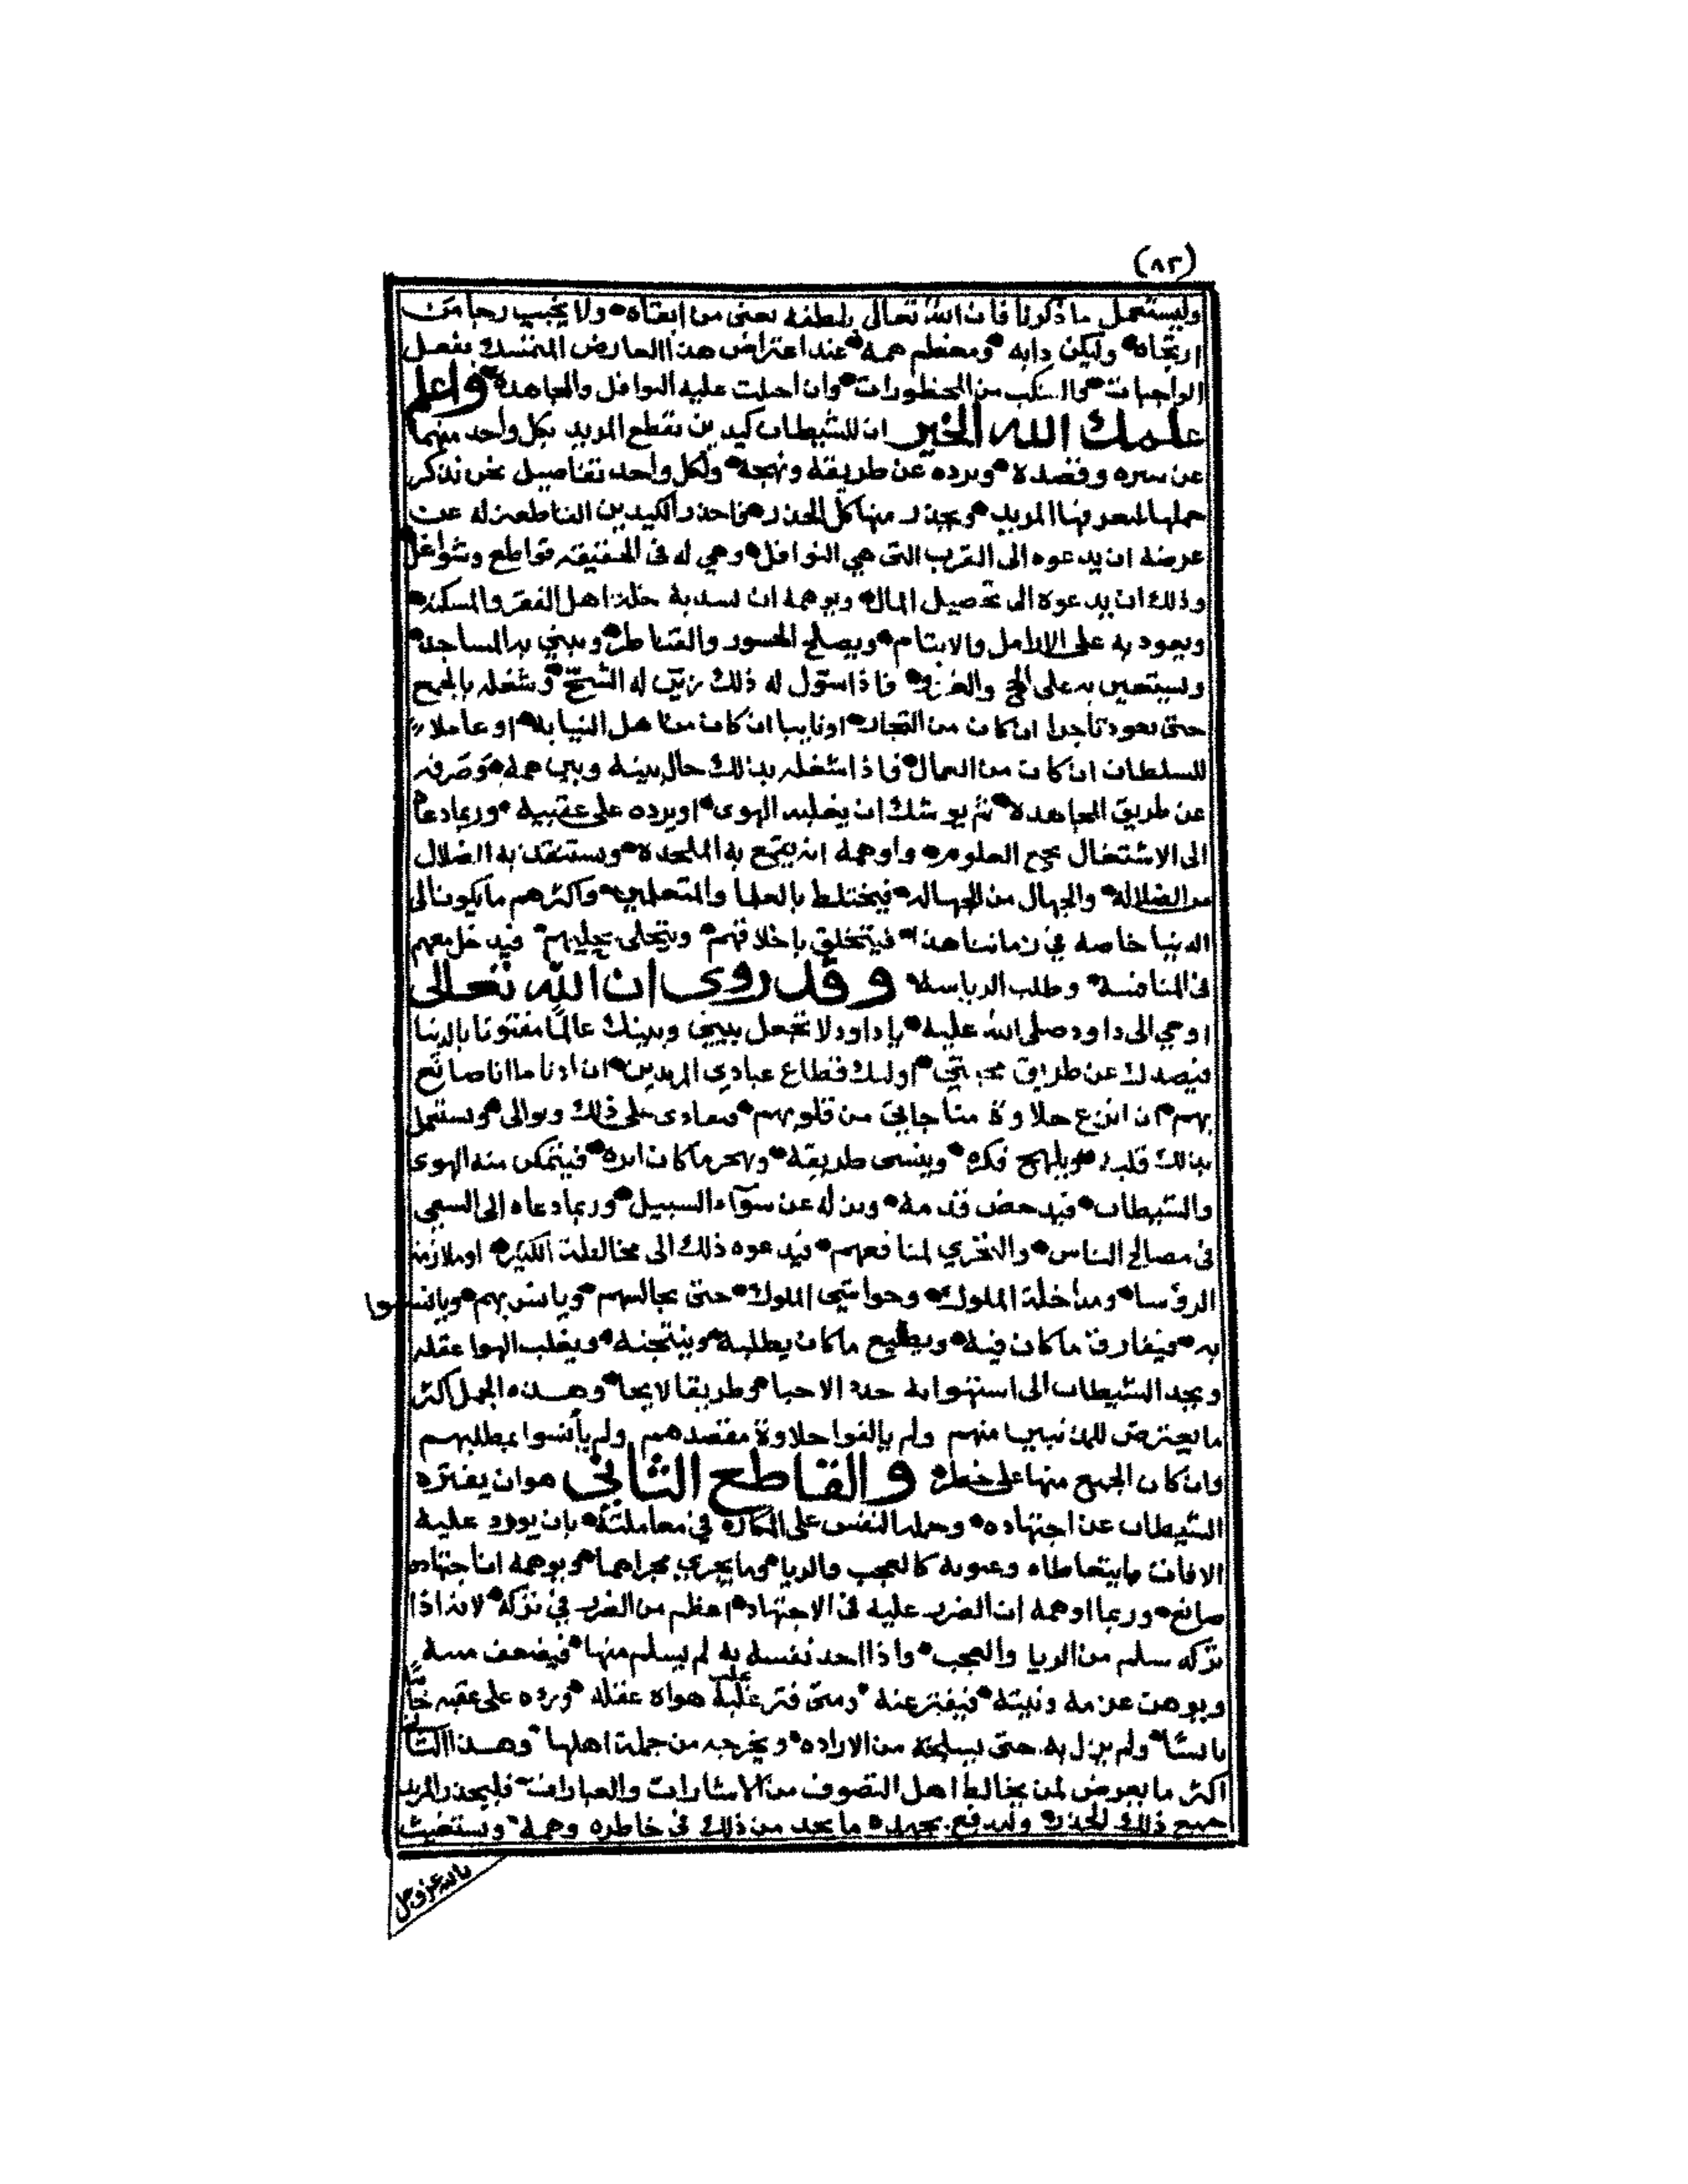 (٨٣)
وليستعمل ما ذكرنا فان الله تعالى بلطفه يعنى من ابتغاه ولا يخيب رجا من
ارتجاه وليكن دابه ومعظم همه عند اعتراض هذا العارض التمسك بفعل
الواجبات والتنكب من المحظورات وان احلت عليه النوافل والمجاهده واعلم
علمك الله الخير ان للشيطان كيدين تقطع المريد بكل واحد منهما
عن سيره وقصده ويرده عن طريقه ونهجه ولكل واحد تفاصيل نحن نذكر
جملها لتعرفها المريد ويحذر منها كل الحذر فاحذر الكيدين القاطعين له عن
عرضه ان يدعوه الى القرب التى هي النوافل وهي له فى الحقيقه قواطع وشواغل
وذلك ان يدعوه الى تحصيل المال ويوهمه ان يسد به خلة اهل الفقر والمسكنه
ويعود به على الارامل والايتام ويصلح الجسور والقناطر ويبني به المساجد
ويستعين به على الحج والغزو فاذا سول له ذلك زين له الشح وشغله بالجمع
حتى يعود تاجرا ان كان من التجار او نايبا ان كان من اهل النيابه او عاملا
للسلطان ان كان من العمال فاذا شغله بذلك حال بينه وبين همه وصرفه
عن طريق المجاهده ثم يوشك ان يغلبه الهوى او يرده على عقبيه وربما دعاه
الى الاشتغال بجمع العلوم واوهمه انه يقمع به الملحده ويستنقذ به الضلال
من الضلاله والجهال من الجهاله فيختلط بالعلما والمتعلمين واكثرهم مايكون الى
الدنيا خاصه في زماننا هذا فيتخلق باخلاقهم ويتحلى بحليهم فيدخل معهم
فى المنافسه وطلب الرياسه وقد روى ان الله تعالى
اوحي الى داود صلى الله عليه يا داود لا تجعل بيني وبينك عالمًا مفتونا بالدنيا
فيصدك عن طريق محبتي اوليك قطاع عبادي المريدين ان ادنا ما انا صانع
بهم ان انزع حلاوة مناجاتى من قلوبهم فيعادى على ذلك ويوالى ويستعمل
بذلك قلبه ويلهج فكره وينسى طريقه ويهجر ما كان امره فيتمكن منه الهوى
والشيطان فيدحض قدمه ويزله عن سوآء السبيل وربما دعاه الى السعي
فى مصالح الناس والتحري لمنافعهم فيدعوه ذلك الى مخالطة الكثير او ملازمة
الرؤسا ومداخلة الملوك وحواشي الملوك حتى يجالسهم ويانس بهم ويانسوا
به فيفارق ما كان فيه ويضيع ما كان يطلبه وينتجنه ويغلب الهوا عقله
ويجد الشيطان الى استهوايه جدة الاحيا وطريقا لايحا وهذه الجمل اكثر
ما يعترض للمذنبين منهم ولم يالفوا حلاوة مقصدهم ولم يأنسوا بمطلبهم
وان كان الجميع منها على خطر والقاطع الثاني هو ان يفتره
الشيطان عن اجتهاده وحمله النفس على المكاره في معاملته بان يورد عليه
الافات مايتعاطاه وعيوبه كالعجب والريا وما يجري مجراهما ويوهمه ان اجتهاده
ضائع وربما اوهمه ان الضرر عليه فى الاجتهاد اعظم من الضرر في تركه لانه اذا
تركه سلم من الريا والعجب واذا اجهد نفسه به لم يسلم منها فيضعف منه
ويوهن عزمه ونيته فيفتر عنه ومتى فتر غلب هواه عقله ورده على عقبه خا
يا بيسًا ولم يزل به حتى يسلبخه من الاراده ويخرجه من جملة اهلها وهذا الثاني
اكثر ما يعرض لمن يخالط اهل التصوف من الاشارات والعبارات فليحذر المريد
جميع ذلك الحذر وليدفع بجهده ما يجد من ذلك فى خاطره وهمه ويستغيث
بالله عز وجل